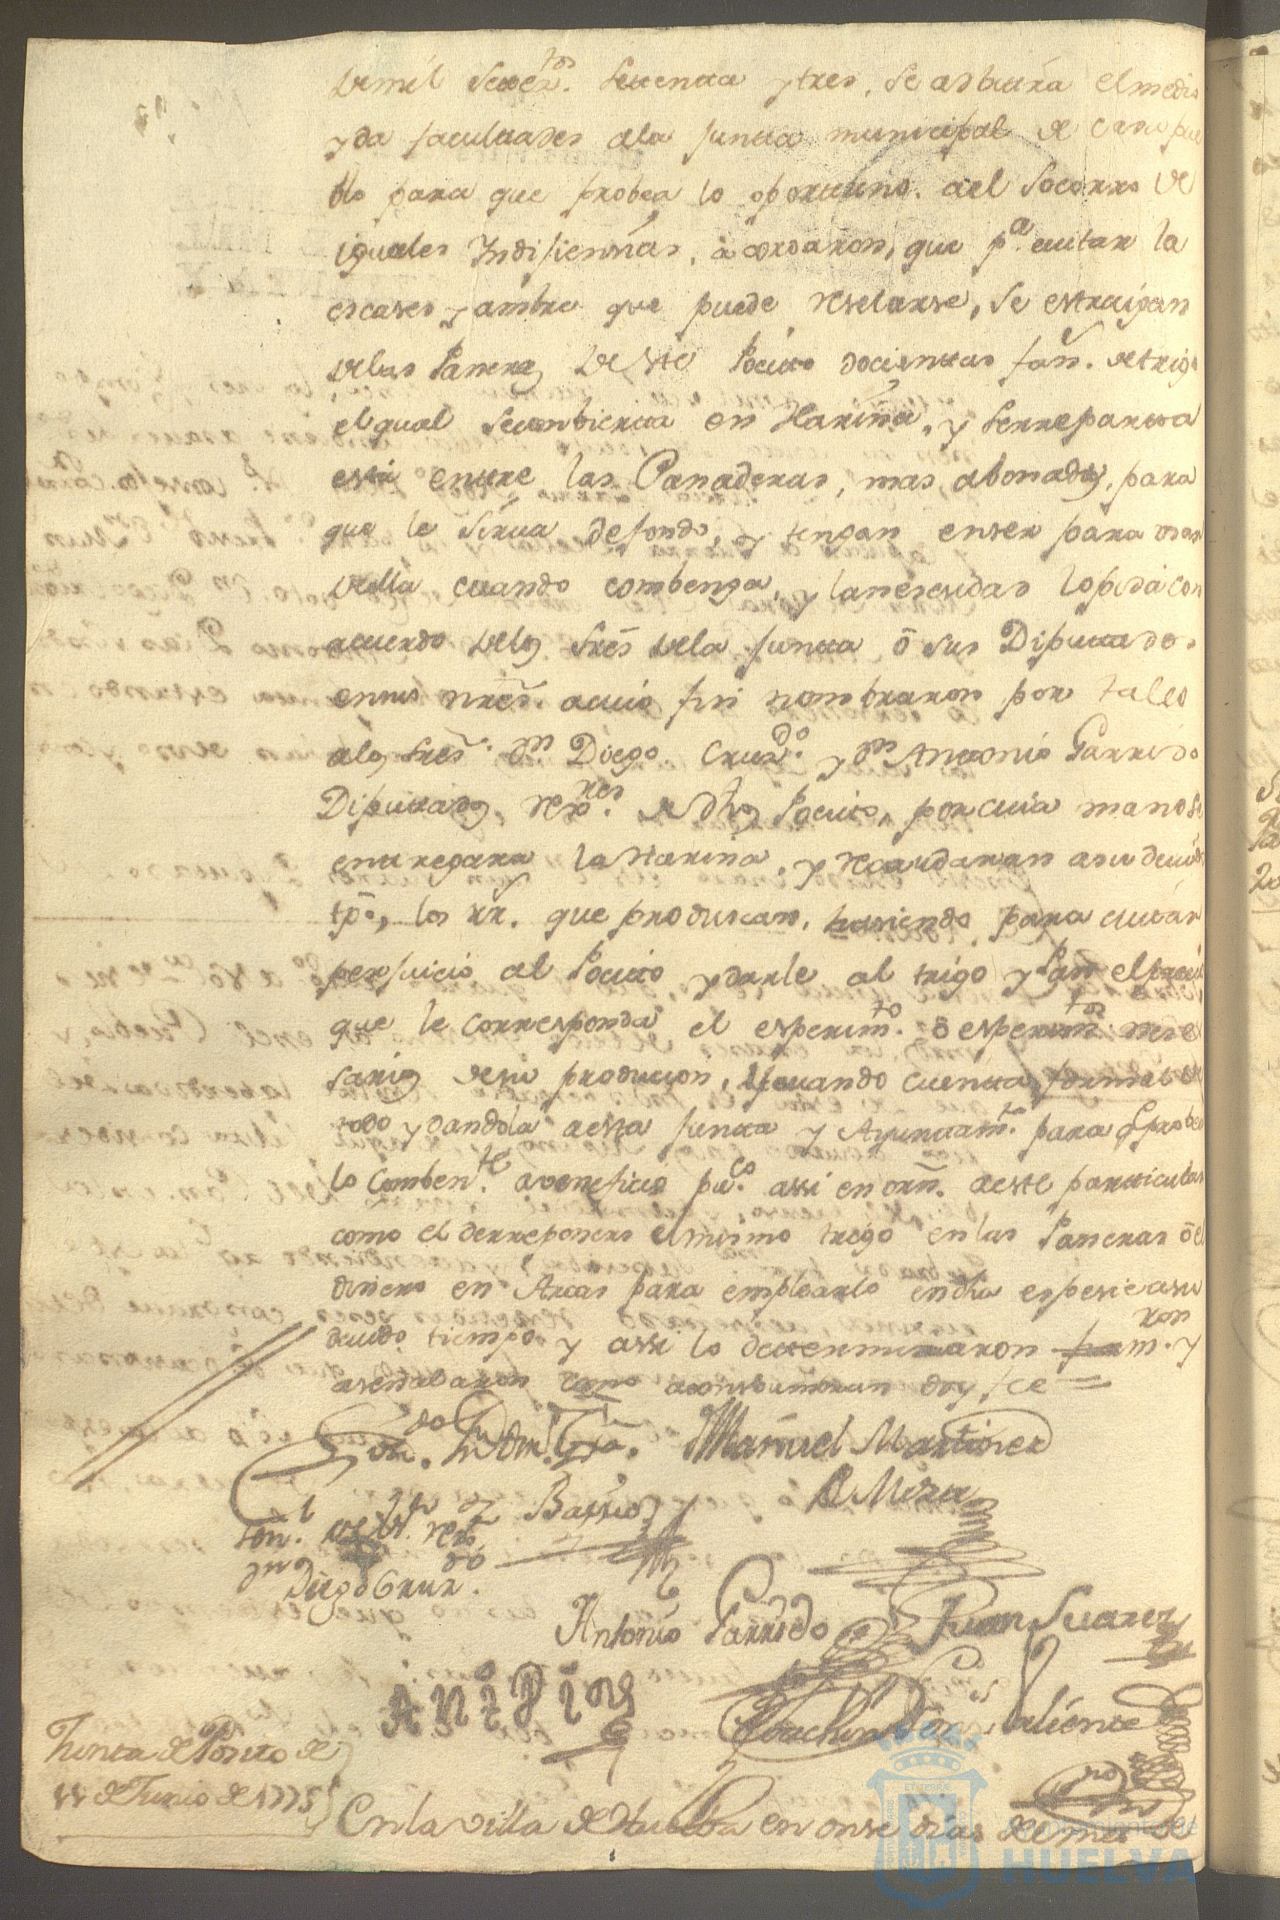 de mil setez.tos setenta y tres, se adbierta el medio
y da facultades a la Junta municipal de cada pue
blo para que probea lo oportuno. al socorro de
iguales Indisiennias, acordaron, que p.a evitar la
escases y ambre que puede reselarse, se estraigan
de las Paneras de este Posito docientas fan. de trigo
el qual se combierta en Harina, y se rreparta
esta entre las Panaderas, mas abonadas, para
que le sirva de fondo, y tengan enser para usar
della cuando combenga, y la nesesidad lo pida con
acuerdo de los sres de la Junta ô sus Diputados.
a cuio fin nombraron por tales
a los sres. Dn. Diego Cruz.do y Dn Antonio Garrido
Diputados, de dho Posito, por cuia mano se
entregara la Harina, y recaudaran a su devido
tpo, los rr. que produscan, hasiendo para evitar
perjuicio al Posito y darle al trigo y Pan el presio
que le corresponda el esperim.to ô esperim.tos nese
sarios de su producion, llevando cuenta formal de
todo y dandola a esta Junta y Ayuntam.to para q probea
lo comben.te a veneficio pu.co assi en orn. a este particular
como el de rreponer el mismo trigo en las Paneras ô el
dinero en Arcas para emplearlo en dha espesie a su
devido tiempo y assi lo determinaron firm.ron y
aseñalaron como acostumbran doy fee =
Manuel Martinez
Barrio
de Mora
Diego Cruz.do
Antonio Garrido
Juan Suarez
Joachin
Valiente
Junta de Posito de
11 de Junio de 1775
En la villa de Huelba en onse dias de mes de
Ayuntamiento de
HUELVA